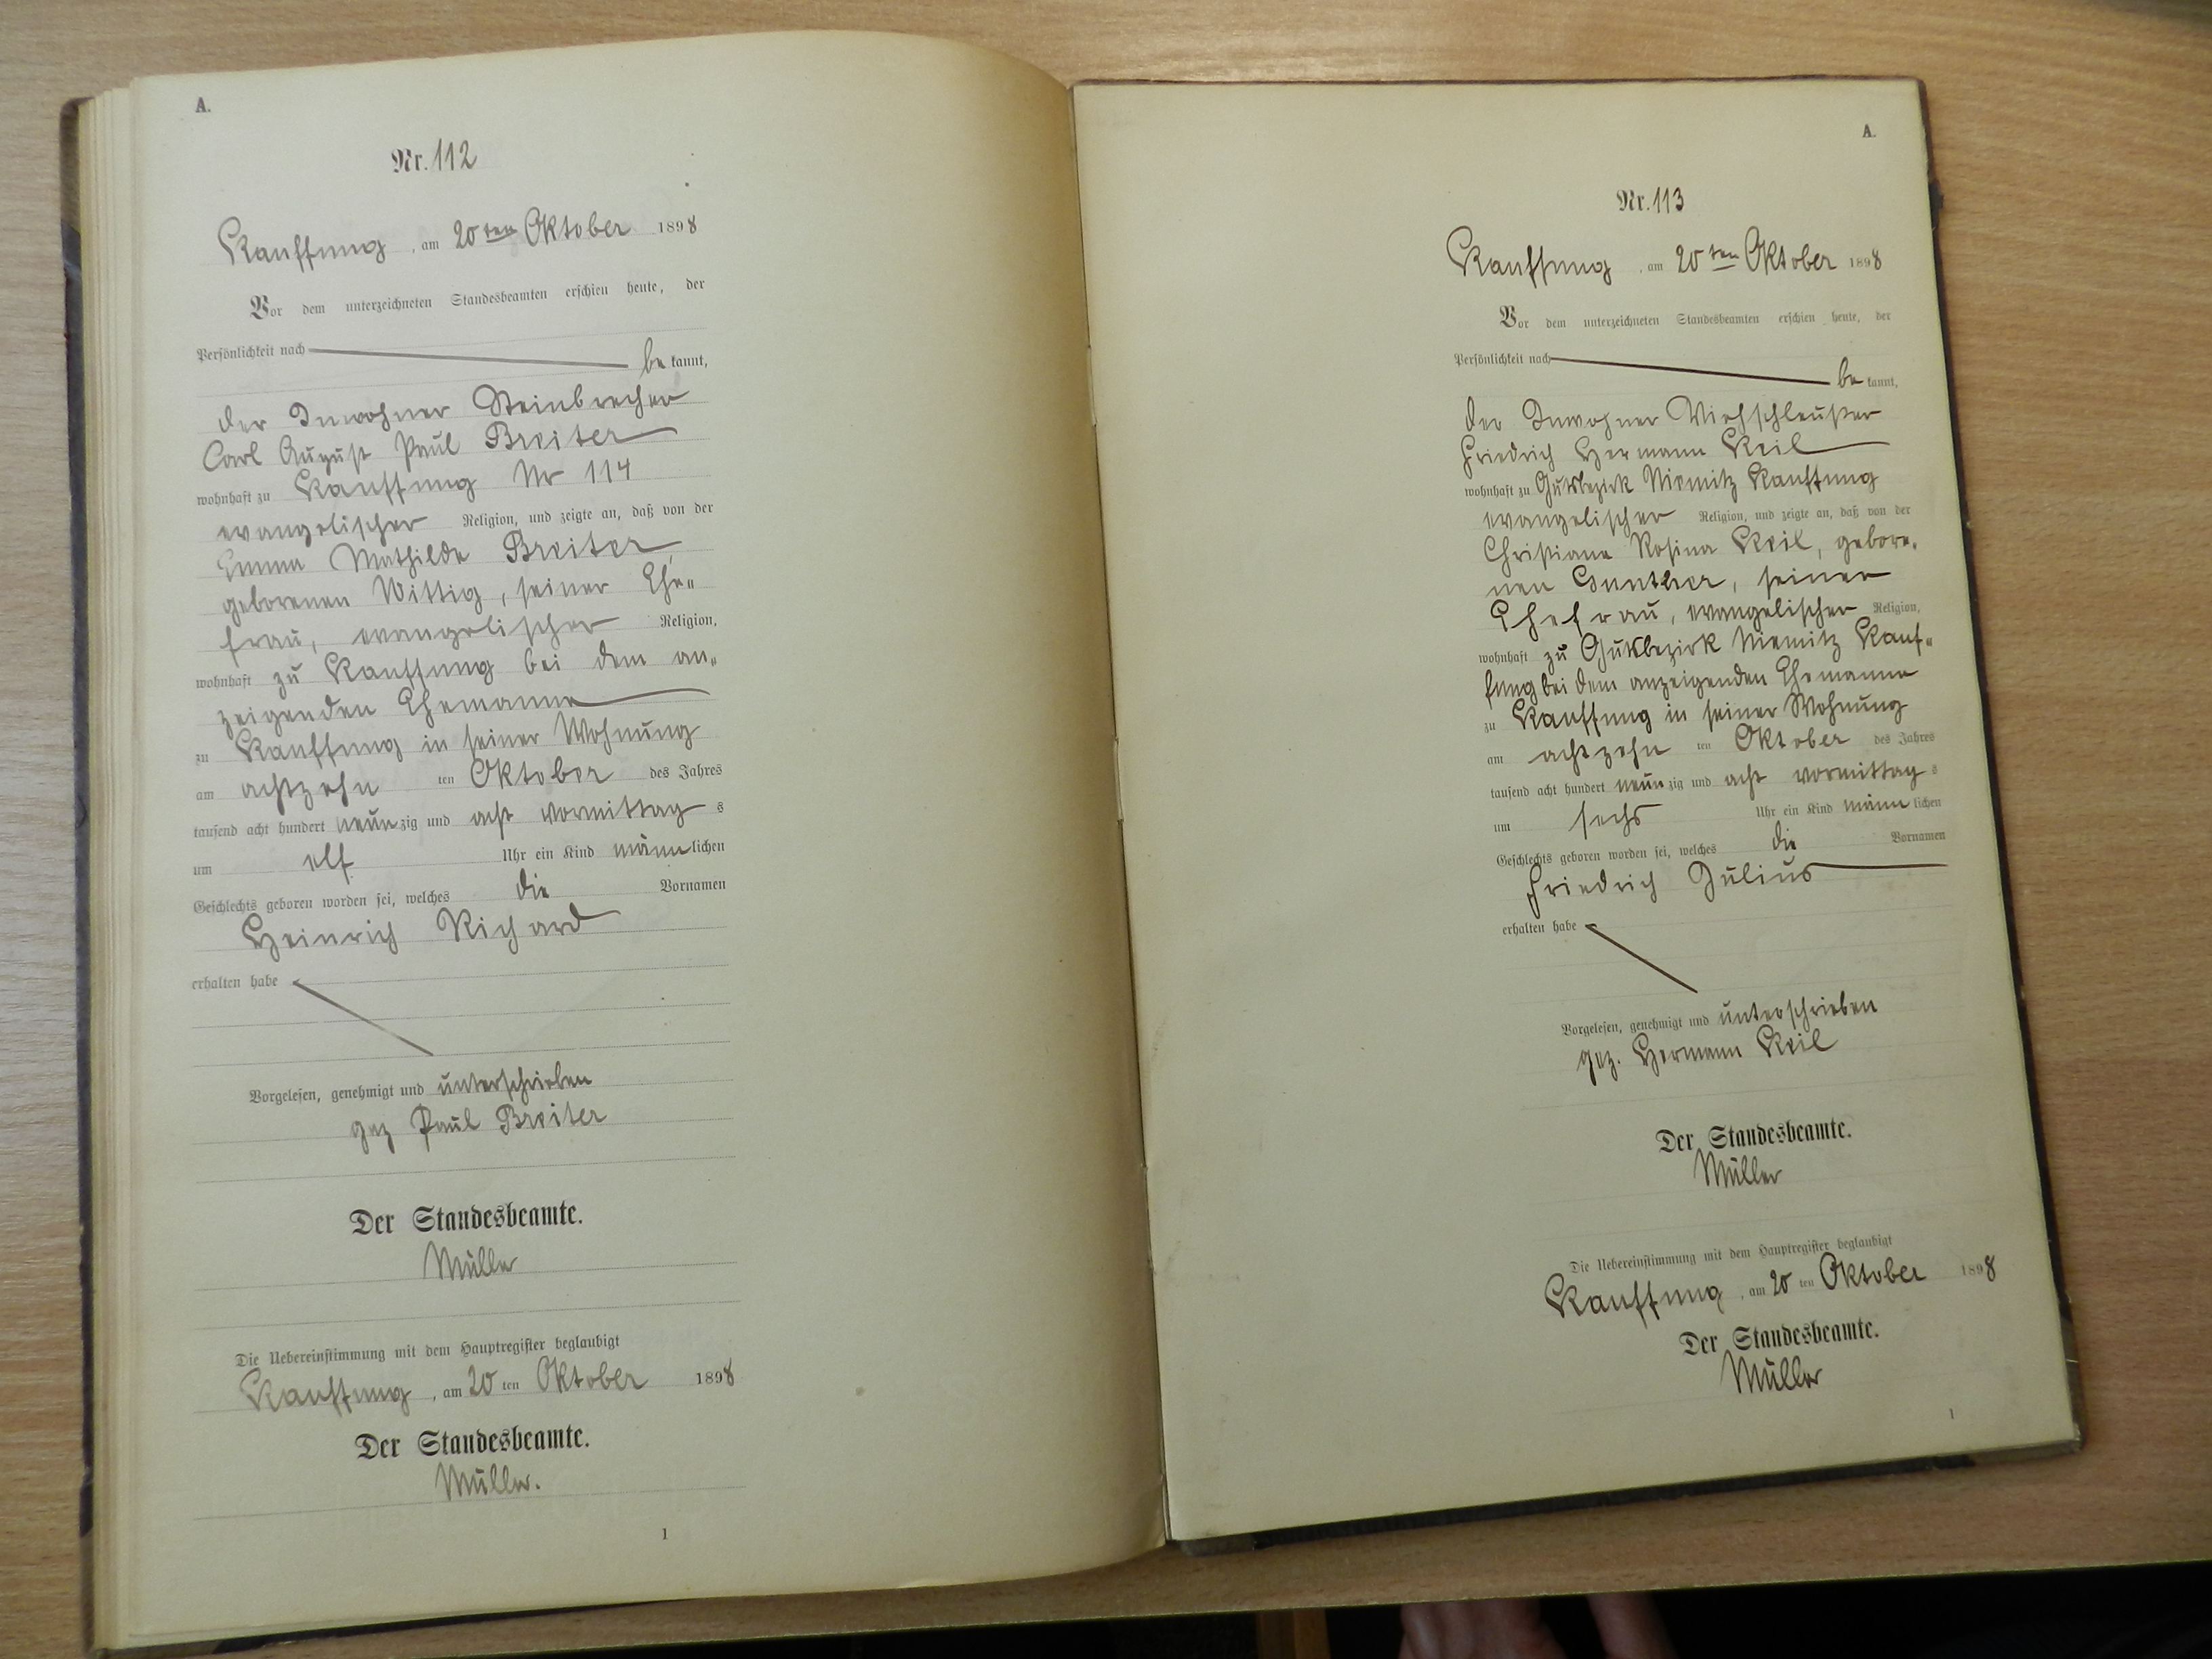 A.
Nr. 112
Kauffung, am 20ten Oktober 1898
Vor dem unterzeichneten Standesbeamten erschien heute, der
Persönlichkeit nach
bekannt,
der Inwohner Steinbrecher
Carl August Paul Breiter
wohnhaft zu Kauffung Nr 114
evangelischer Religion, und zeigte an, daß von der
Emma Mathilde Breiter,
geborenen Wittig, seiner Ehe„
frau, evangelischer Religion,
wohnhaft zu Kauffung bei dem an„
zeigenden Ehemanne
zu Kauffung in seiner Wohnung
am achtzehnten Oktober des Jahres
tausend acht hundert neunzig und acht vormittags
um elf Uhr ein Kind männlichen
Geschlechts geboren worden sei, welches die Vornamen
Heinrich Richard
erhalten habe
Vorgelesen, genehmigt und unterschrieben
gez Paul Breiter
Der Standesbeamte.
Müller
Die Uebereinstimmung mit dem Hauptregister beglaubigt
Kauffung, am 20ten Oktober 1898
Der Standesbeamte.
Müller.
1
A.
Nr. 113
Kauffung, am 20ten Oktober 1898
Vor dem unterzeichneten Standesbeamten erschien heute, der
Persönlichkeit nach
bekannt,
der Inwohner Viehschleußer
Friedrich Hermann Keil
wohnhaft zu Gutsbezirk Niemitz Kauffung
evangelischer Religion, und zeigte an, daß von der
Christiane Rosina Keil, gebore„
nen Gunther, seiner
Ehefrau, evangelischer Religion,
wohnhaft zu Gutsbezirk Niemitz Kauf„
fung bei dem anzeigenden Ehemanne
zu Kauffung in seiner Wohnung
am achtzehnten Oktober des Jahres
tausend acht hundert neunzig und acht vormittags
um sechs Uhr ein Kind männlichen
Geschlechts geboren worden sei, welches die Vornamen
Friedrich Julius
erhalten habe
Vorgelesen, genehmigt und unterschrieben
gez. Hermann Keil
Der Standesbeamte.
Müller
Die Uebereinstimmung mit dem Hauptregister beglaubigt
Kauffung, am 20ten Oktober 1898
Der Standesbeamte.
Müller
1